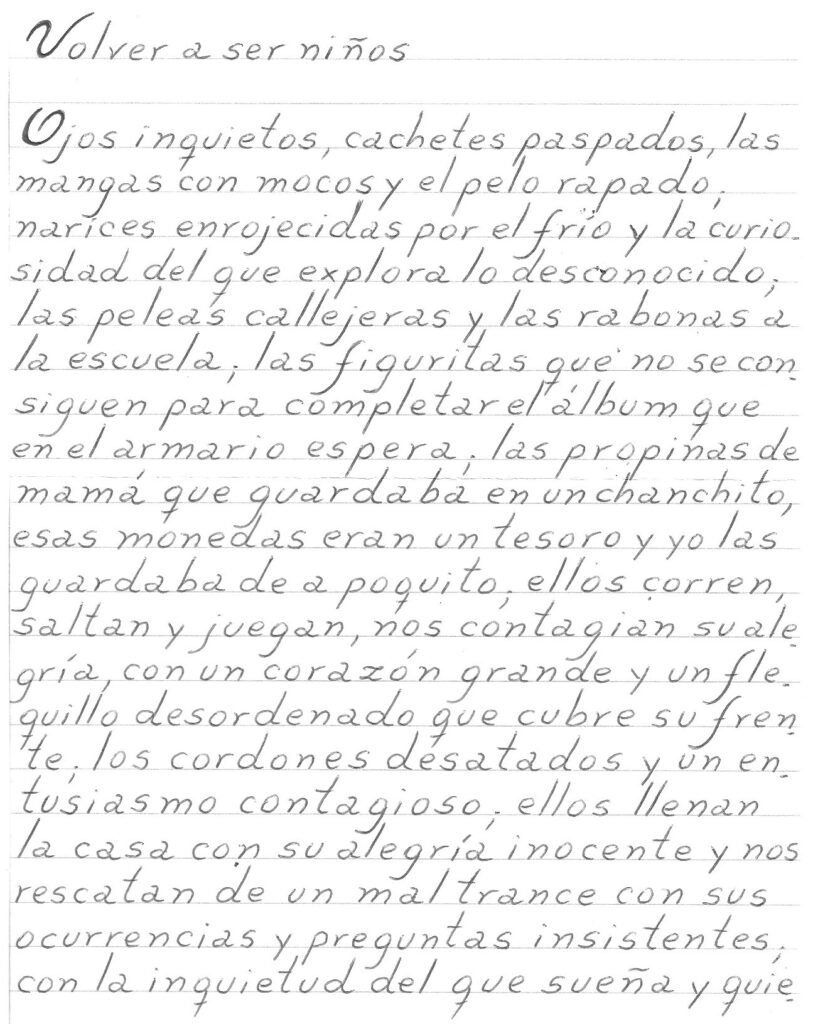 Volver a ser niños
Ojos inquietos, cachetes paspados, las
mangas con mocos y el pelo rapado;
narices enrojecidas por el frío y la curio-
sidad del que explora lo desconocido;
las peleas callejeras y las rabonas a
la escuela; las figuritas que no se con-
siguen para completar el álbum que
en el armario espera; las propinas de
mamá que guardaba en un chanchito,
esas monedas eran un tesoro y yo las
guardaba de a poquito; ellos corren,
saltan y juegan, nos contagian su ale-
gría, con un corazón grande y un fle-
quillo desordenado que cubre su fren-
te; los cordones desatados y un en-
tusiasmo contagioso; ellos llenan
la casa con su alegría inocente y nos
rescatan de un mal trance con sus
ocurrencias y preguntas insistentes;
con la inquietud del que sueña y quie-